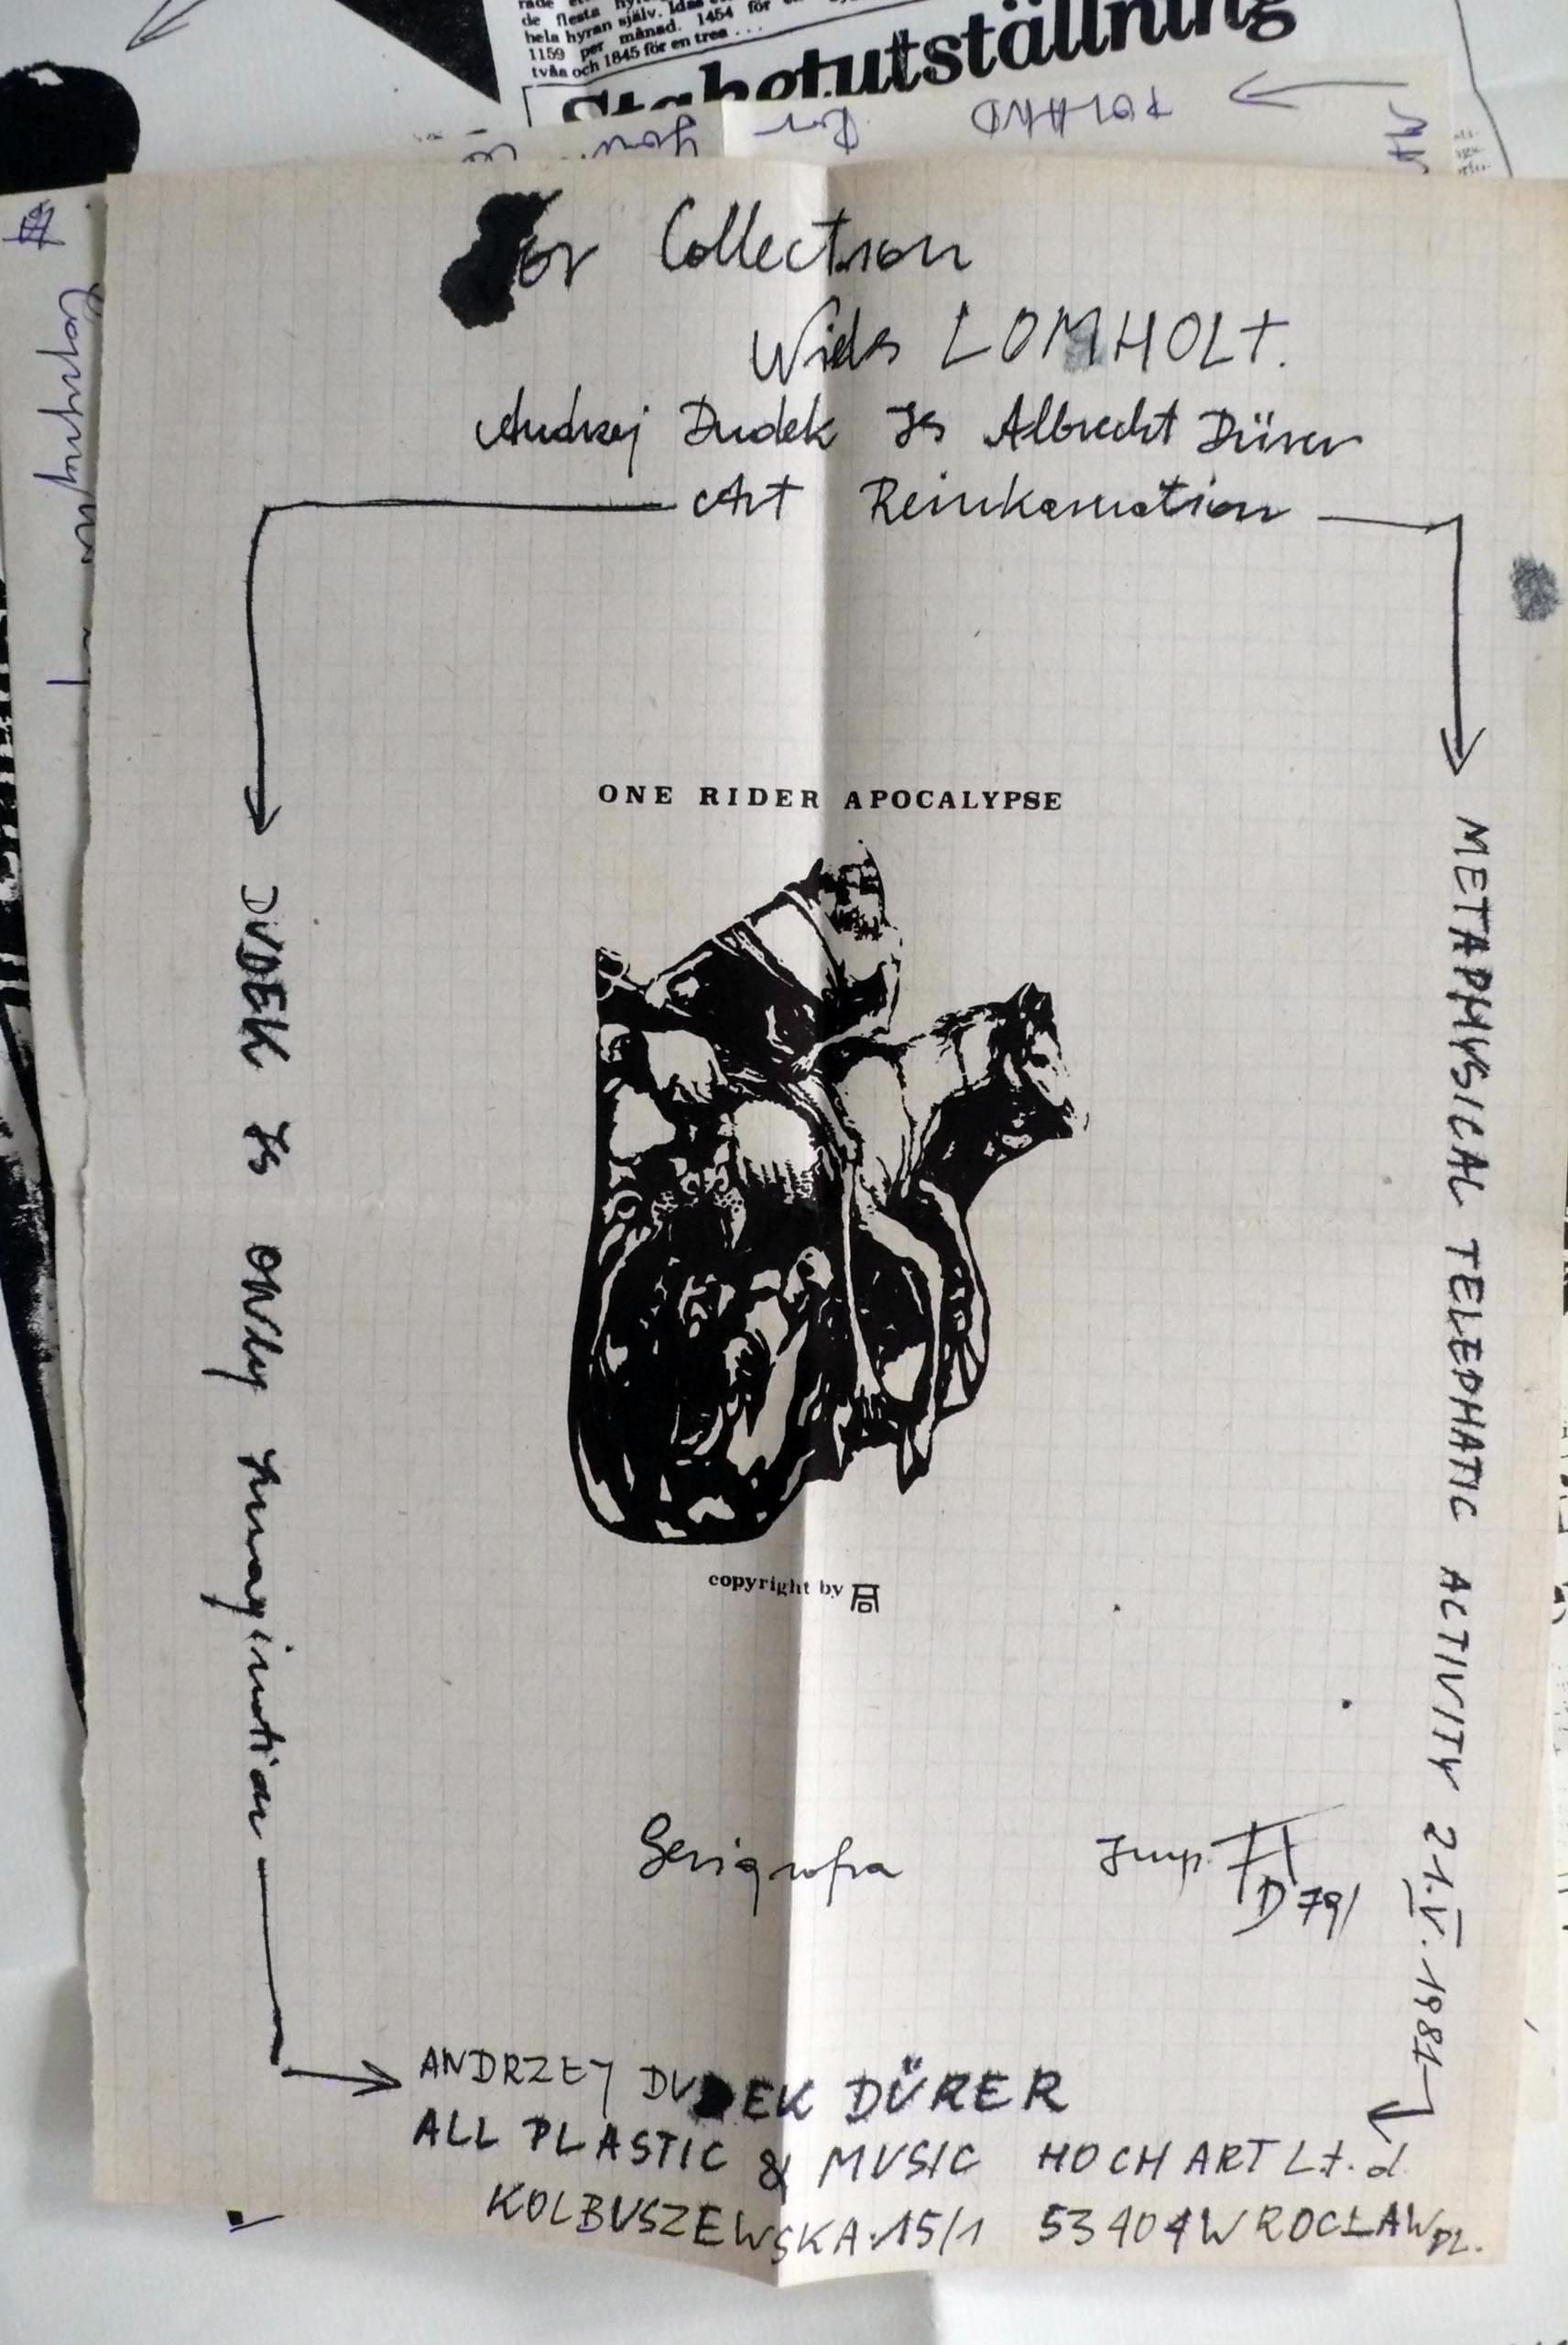 de flesta
hela hyran själv. Idas
1159 per månad. 1454 för
tvåa och 1845 för en trea ...
Stabetutställning
POLAND
for
your
For Collection
Niels LOMHOLT.
Andrzej Dudek Is Albrecht Dürer
Art Reinkarnation
ONE RIDER APOCALYPSE
DUDEK Is ONly Imagination
METAPHYSICAL TELEPHATIC ACTIVITY 21.V.1981
copyright by AD
Serigrafia
Imp. AD 79/
ANDRZEJ DUDEK DÜRER
ALL PLASTIC & MUSIC HOCH ART Lt.d.
KOLBUSZEWSKA 15/1 53404 WROCŁAW PL.